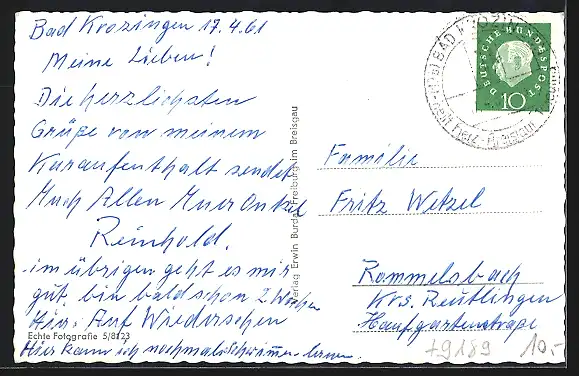 Bad Krozingen 17.4.61
Meine Lieben!
Die herzlichsten
Grüße von meinem
Kuraufenthalt sendet
Euch Allen Euer Onkel
Reinhold.
im übrigen geht es mir
gut, bin bald schon 2 Wochen
hier. Auf Wiedersehen
Hier kann ich nochmal schwimmen lernen.
Echte Fotografie 5/8123
Verlag Erwin Burda, Freiburg im Breisgau
BAD KROZINGEN
DEUTSCHE BUNDESPOST
10
Familie
Fritz Wetzel
Rommelsbach
Krs. Reutlingen
Hanfgartenstraße
+9189
10.-